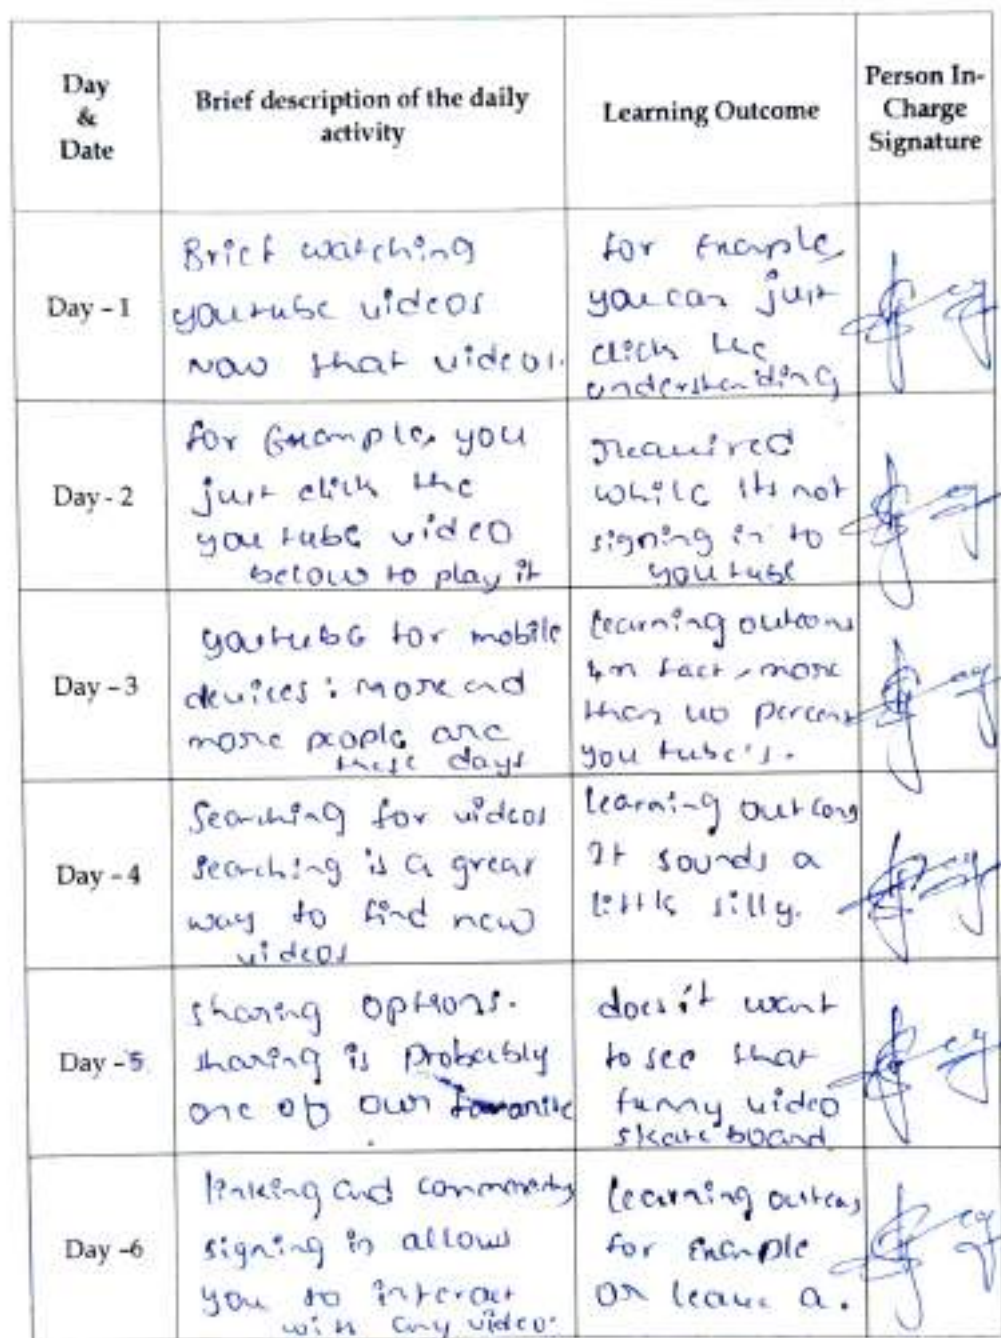 Day
&
Date
Brief description of the daily
activity
Learning Outcome
Person In-
Charge
Signature
Day - 1
Brief watching
youtube videos
Now that videos.
for Example,
you can just
click the
understanding
Day - 2
for Example, you
just click the
youtube video
below to play it
Required
while its not
signing in to
youtube
Day - 3
youtube for mobile
devices : more and
more people are
these days
learning outcoms
In fact, more
than 40 percent
you tube's.
Day - 4
Searching for videos
searching is a great
way to find new
videos
learning outcoms
It sounds a
little silly.
Day - 5
sharing options.
sharing is probably
one of our favorite
does it want
to see that
funny video
skate board
Day -6
linking and commenting
signing in allow
you to interact
with any video.
learning outcoms
for Example
or leave a.